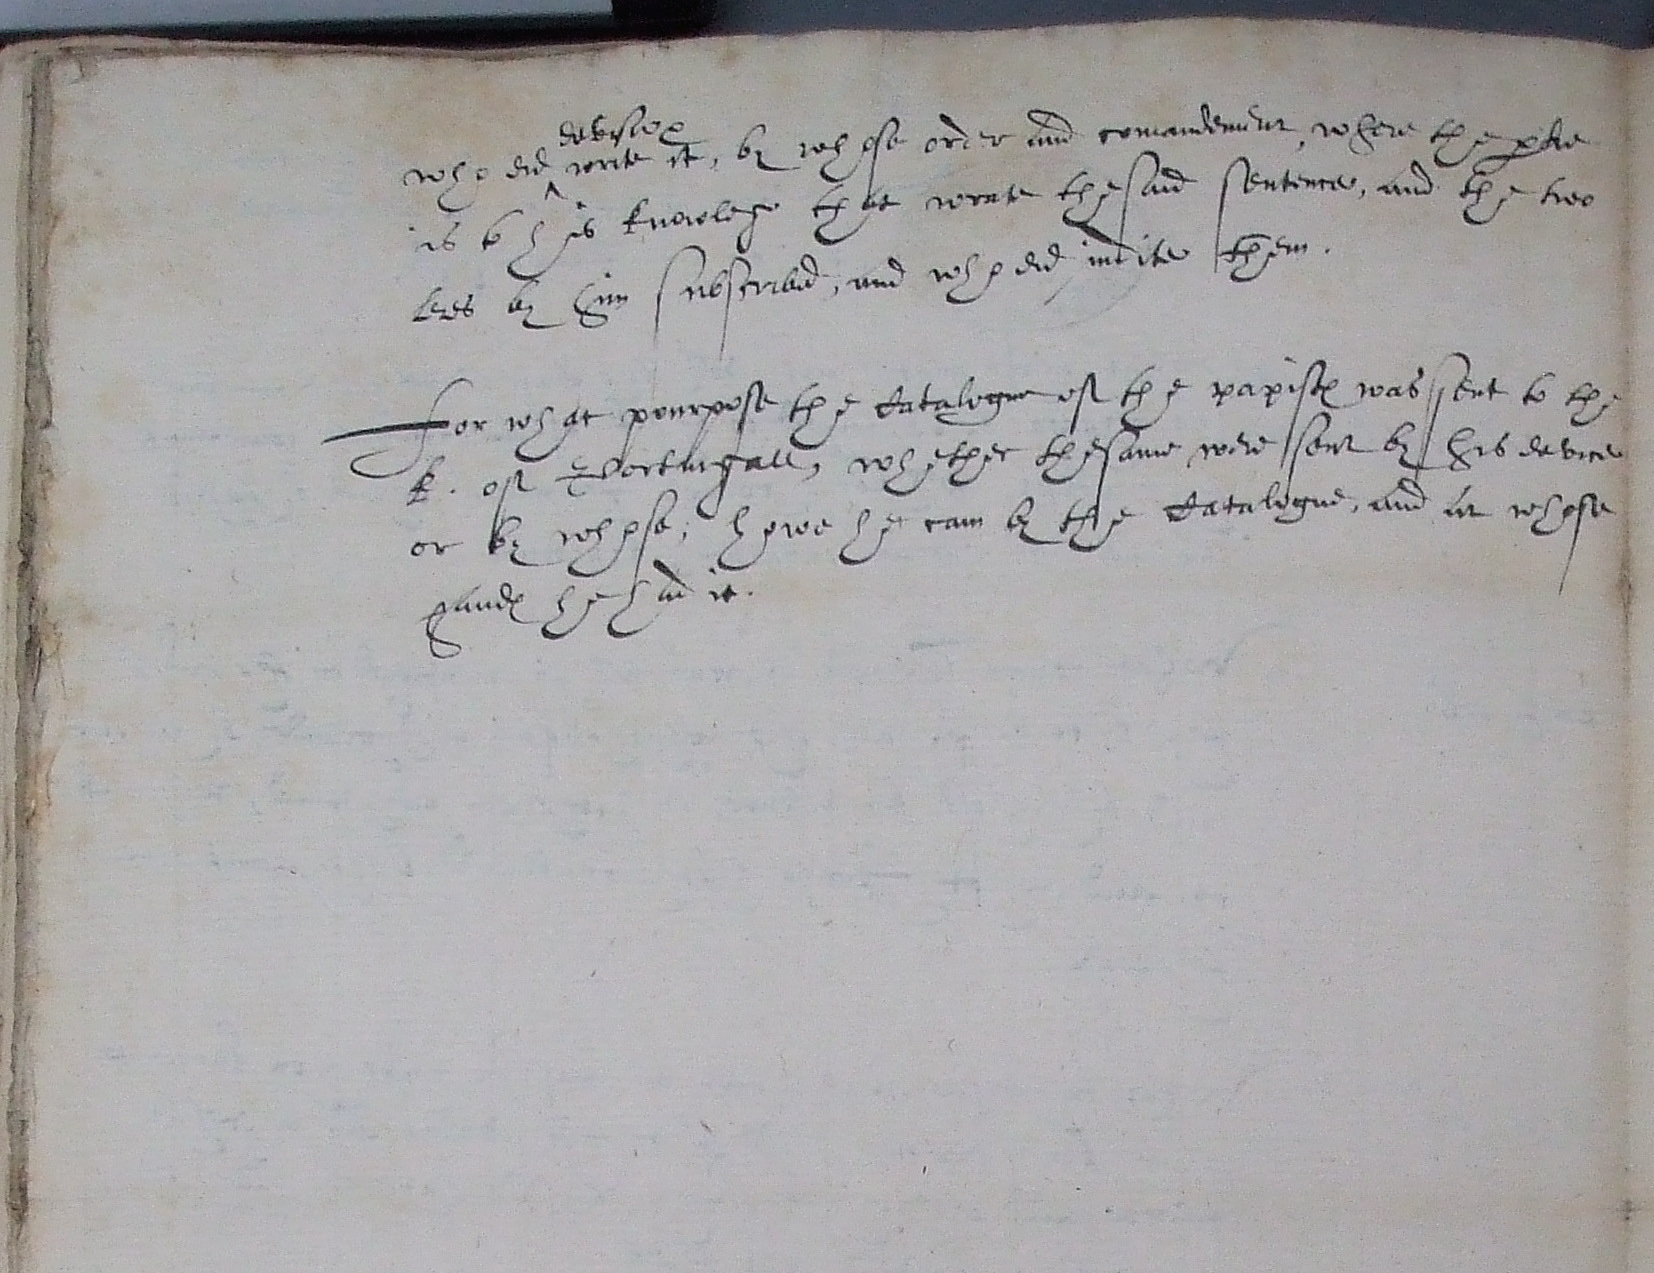 devise or
who did ^ write it, by whose order and comandement, where the p[ar]tie
is to his knowlege that wrote thesaid sentence, and the two
l[ett]res by him subscribed, and who did indite them.
For what pourpose the Catalogue of the papist[es] was sent to the
k. of Portingall, whether thesame were sent by his device
or by whose, howe he cam by the Catalogue, and at whose
hand[es] he had it.